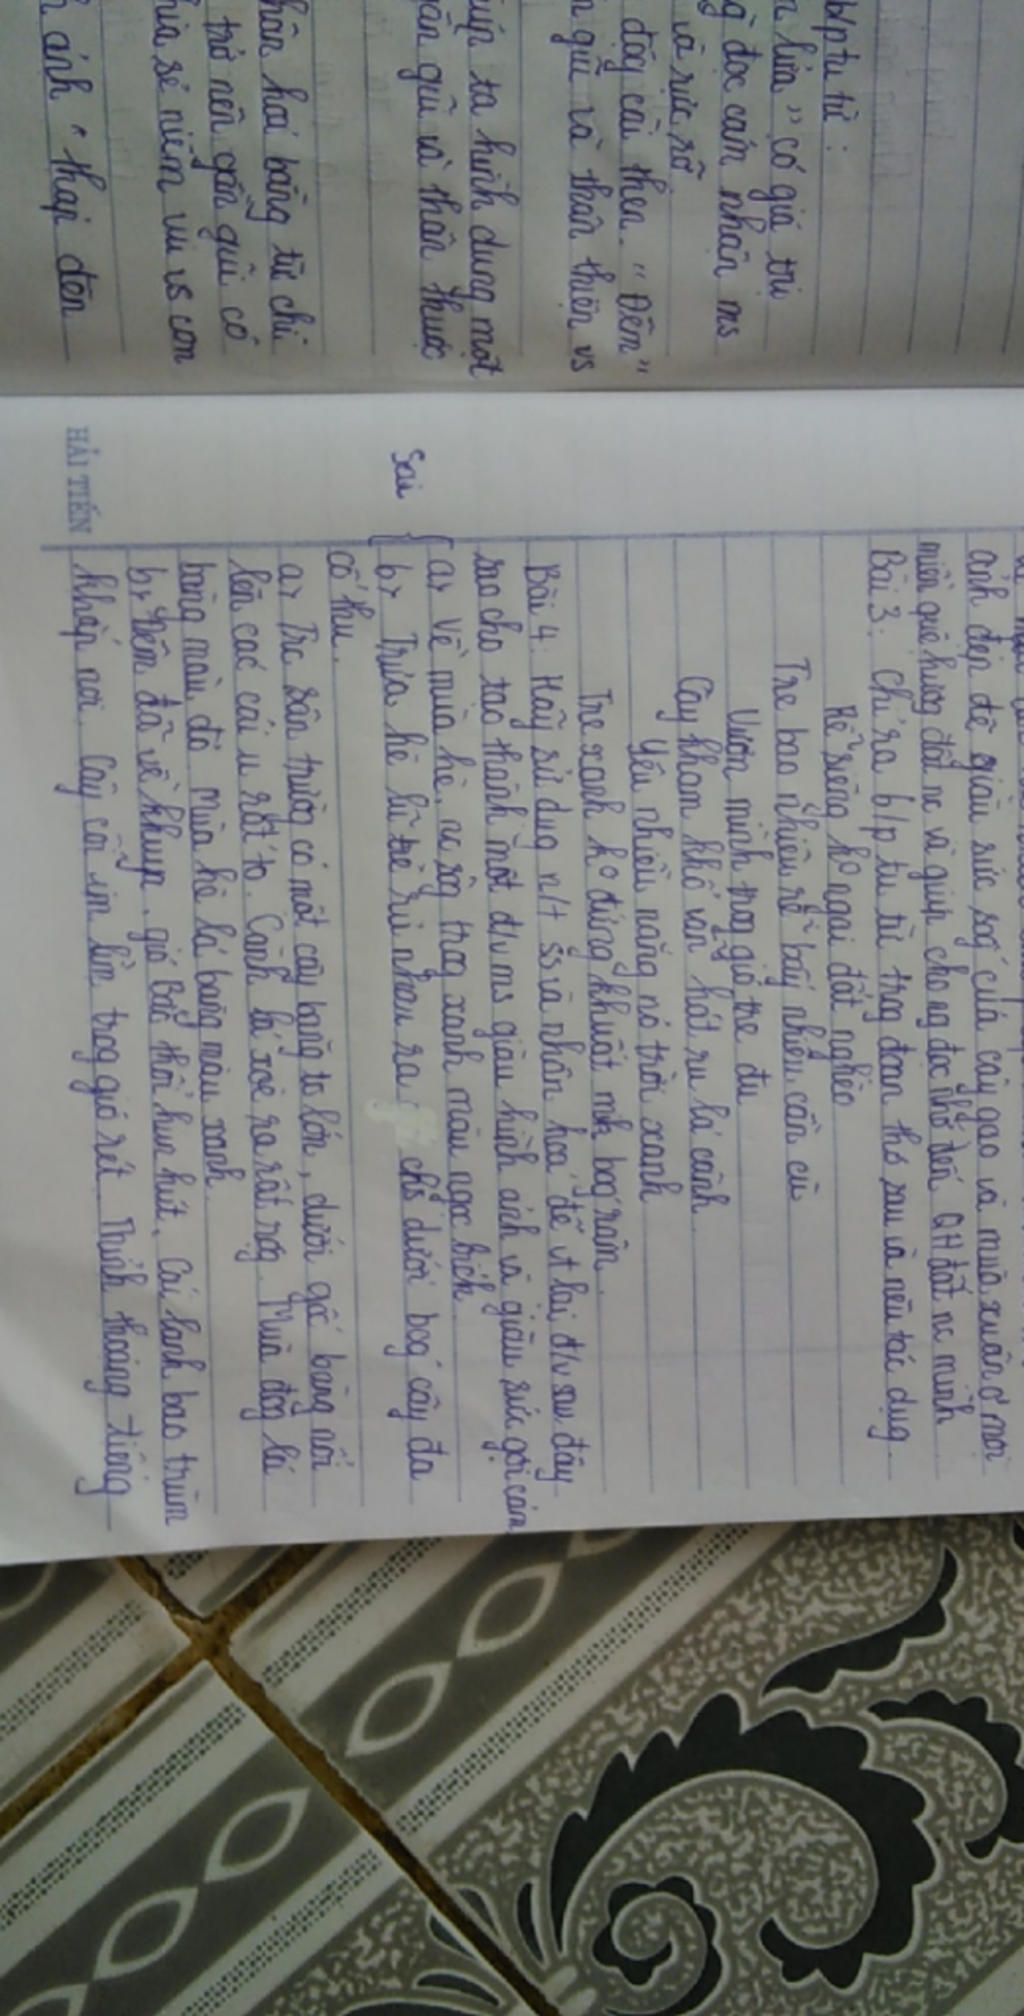 b/p tu từ :
lửa " có giá trị
đọc cảm nhận ms
và rực rỡ
đây cài then. " Đêm "
gũi và thân thiện vs
ta hình dung một
gần gũi và thân thuộc
hân hoá bằng từ chỉ
trở nên gần gũi có
chia sẻ niềm vui vs con
ảnh " thạp đèn
ảnh đẹp đẽ giàu sức sốg của cây gạo và mùa xuân ở mọi
miền quê hương đất nc và giúp cho ng đọc nhớ đến QH đất nc mình
Bài 3 : Chỉ ra b/p tu từ trog đoạn thơ sau và nêu tác dụg
Rễ siêng k° ngại đất nghèo
Tre bao nhiêu rễ bấy nhiêu cần cù
Vươn mình trog gió tre đu
Cây kham khổ vẫn hát ru lá cành.
Yêu nhiều nắng nỏ trời xanh
Tre xanh k° đứng khuất mh bóg râm.
Bài 4 : Hãy sử dụg n/t ss và nhân hoá để vt lại đ/v sau đây
sao cho tạo thành một đ/v ms giàu hình ảnh và giàu sức gợi cảm
Sai { a, Về mùa hè, nc sôg trog xanh màu ngọc bích.
b, Trưa hè lũ trẻ rủ nhau ra chs dưới bóg cây đa
cổ thụ.
a, Trc sân trườg có một cây bàng to lớn, dưới gốc bàng nổi
lên các cái u rất to. Cành lá xoè ra rất rộg. Mùa đôg lá
bàng màu đỏ. Mùa hè lá bàng màu xanh.
b, Đêm đã về khuya, gió Bấc thổi hun hút. Cái lạnh bao trùm
khắp nơi. Cây cối im lìm trog gió rét. Thỉnh thoảng tiếng
HẢI TIẾN